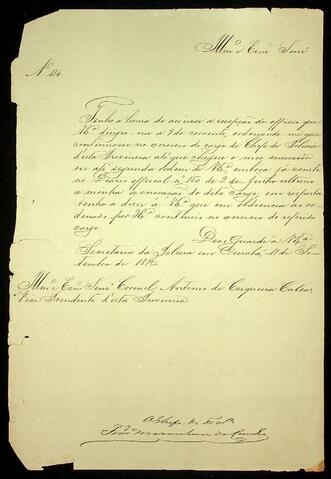 Illmo e Exmo Senr
No 24
Tenho a honra de accusar a recepção do officio que
V.Exa dirigio-me a 9 do corrente, ordenando-me que
continuasse no exercicio do cargo de Chefe de Policia
desta Provincia até que chegue o meu successor
ou até segunda ordem de V.Exa, embora já conste
do Diario Official nº 160 de 9 de Junho ultimo
a minha exoneração do dito cargo; em resposta
tenho a dizer á V.Exa que em obediencia ao or-
denado por V.Exa continúo no exercicio do referido
cargo.
Deos Guarde á V.Exa
Secretaria da Policia em Cuiabá, 17 de Se-
tembro de
Illmo e Exmo Senr Coronel Antonio de Cerqueira Caldas
Vice Presidente d'esta Provincia.
O Chefe de Pola
da Cunha